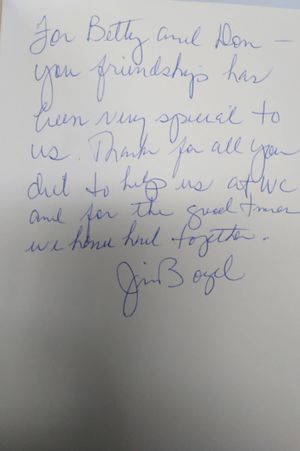 For Betty and Don —
you friendships has
been very special to
us. Thank for all you
did to help us at WC
and for the good times
we have had together.
Jim Boyd